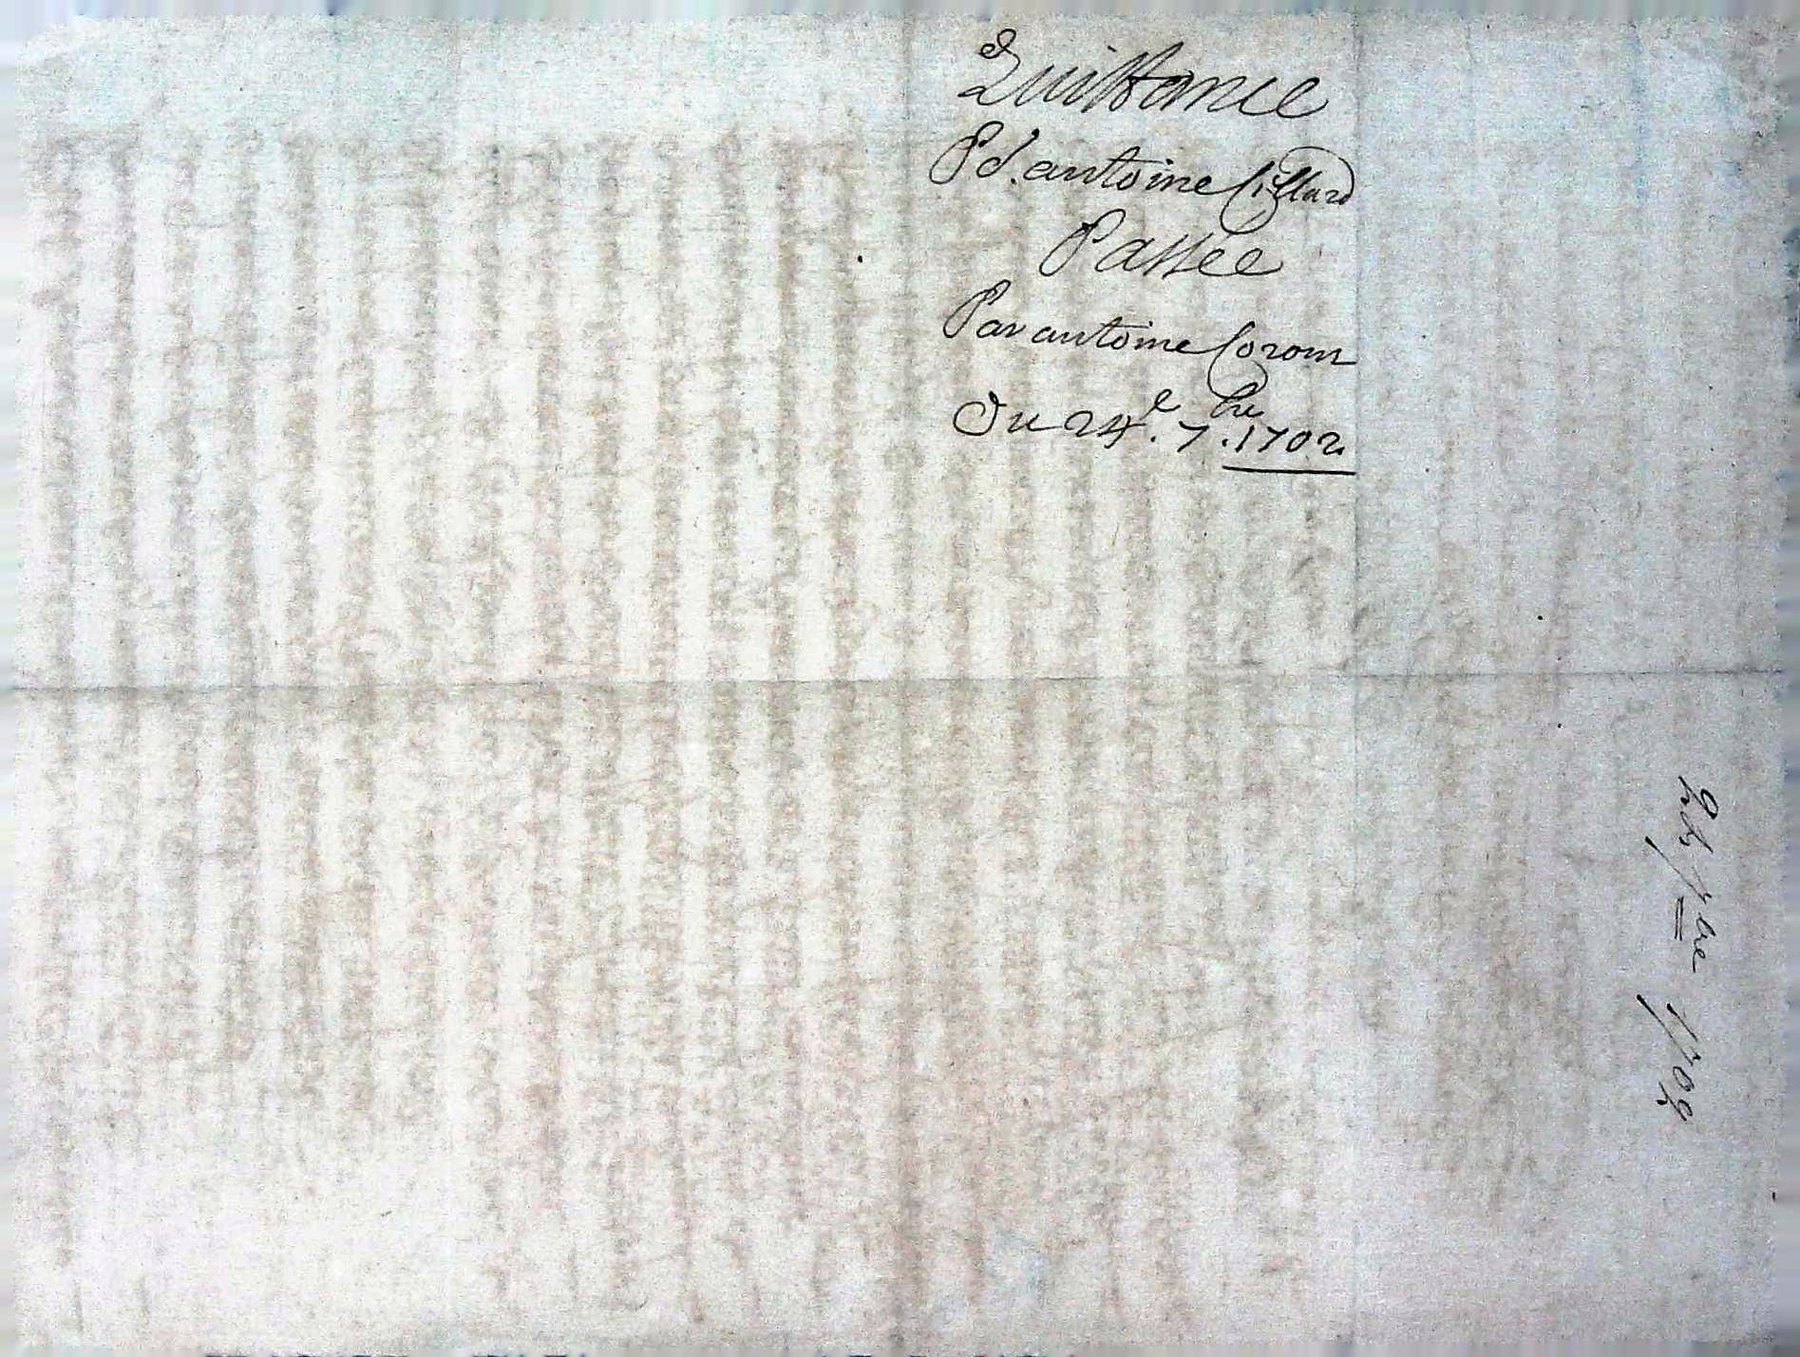 Quittance
Pd. antoine Cillard
Passée
Par antoine Corom
Du 24e. 7bre. 1702
24 7bre 1702